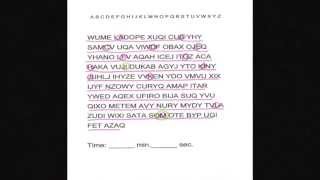 A B C D E F G H I J K L M N O P Q R S T U V W X Y Z
WUME LADOPE XUQI CUG YHY
SAMCV UQA VIWIDF OBAX OJEQ
YHANO LEV AQAH ICEJ ITOZ ACA
HAKA VUJI DUKAB AGYJ YTO KINY
JUHLJ IHYZE VYKEN YDO VMVU XIX
IJYF NZOWY CURYQ AMAP ITAR
YWED AQEX UFIRO BIJA SUQ YVU
QIXO METEM AVY NURY MYDY TVLA
ZUDI WIXI SATA SIOM OTE BYP UQI
FET AZAQ
Time: ______ min.______ sec.